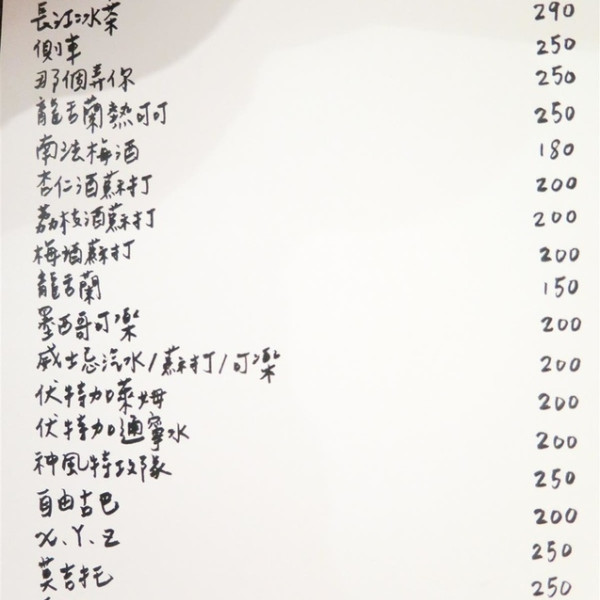 長江冰茶 290
側車 250
那個弄你 250
龍舌蘭熱可可 250
南法梅酒 180
杏仁酒蘇打 200
荔枝酒蘇打 200
梅酒蘇打 200
龍舌蘭 150
墨西哥可樂 200
威士忌汽水/蘇打/可樂 200
伏特加萊姆 200
伏特加通寧水 200
神風特攻隊 250
自由古巴 200
X.Y.Z 250
莫吉托 250